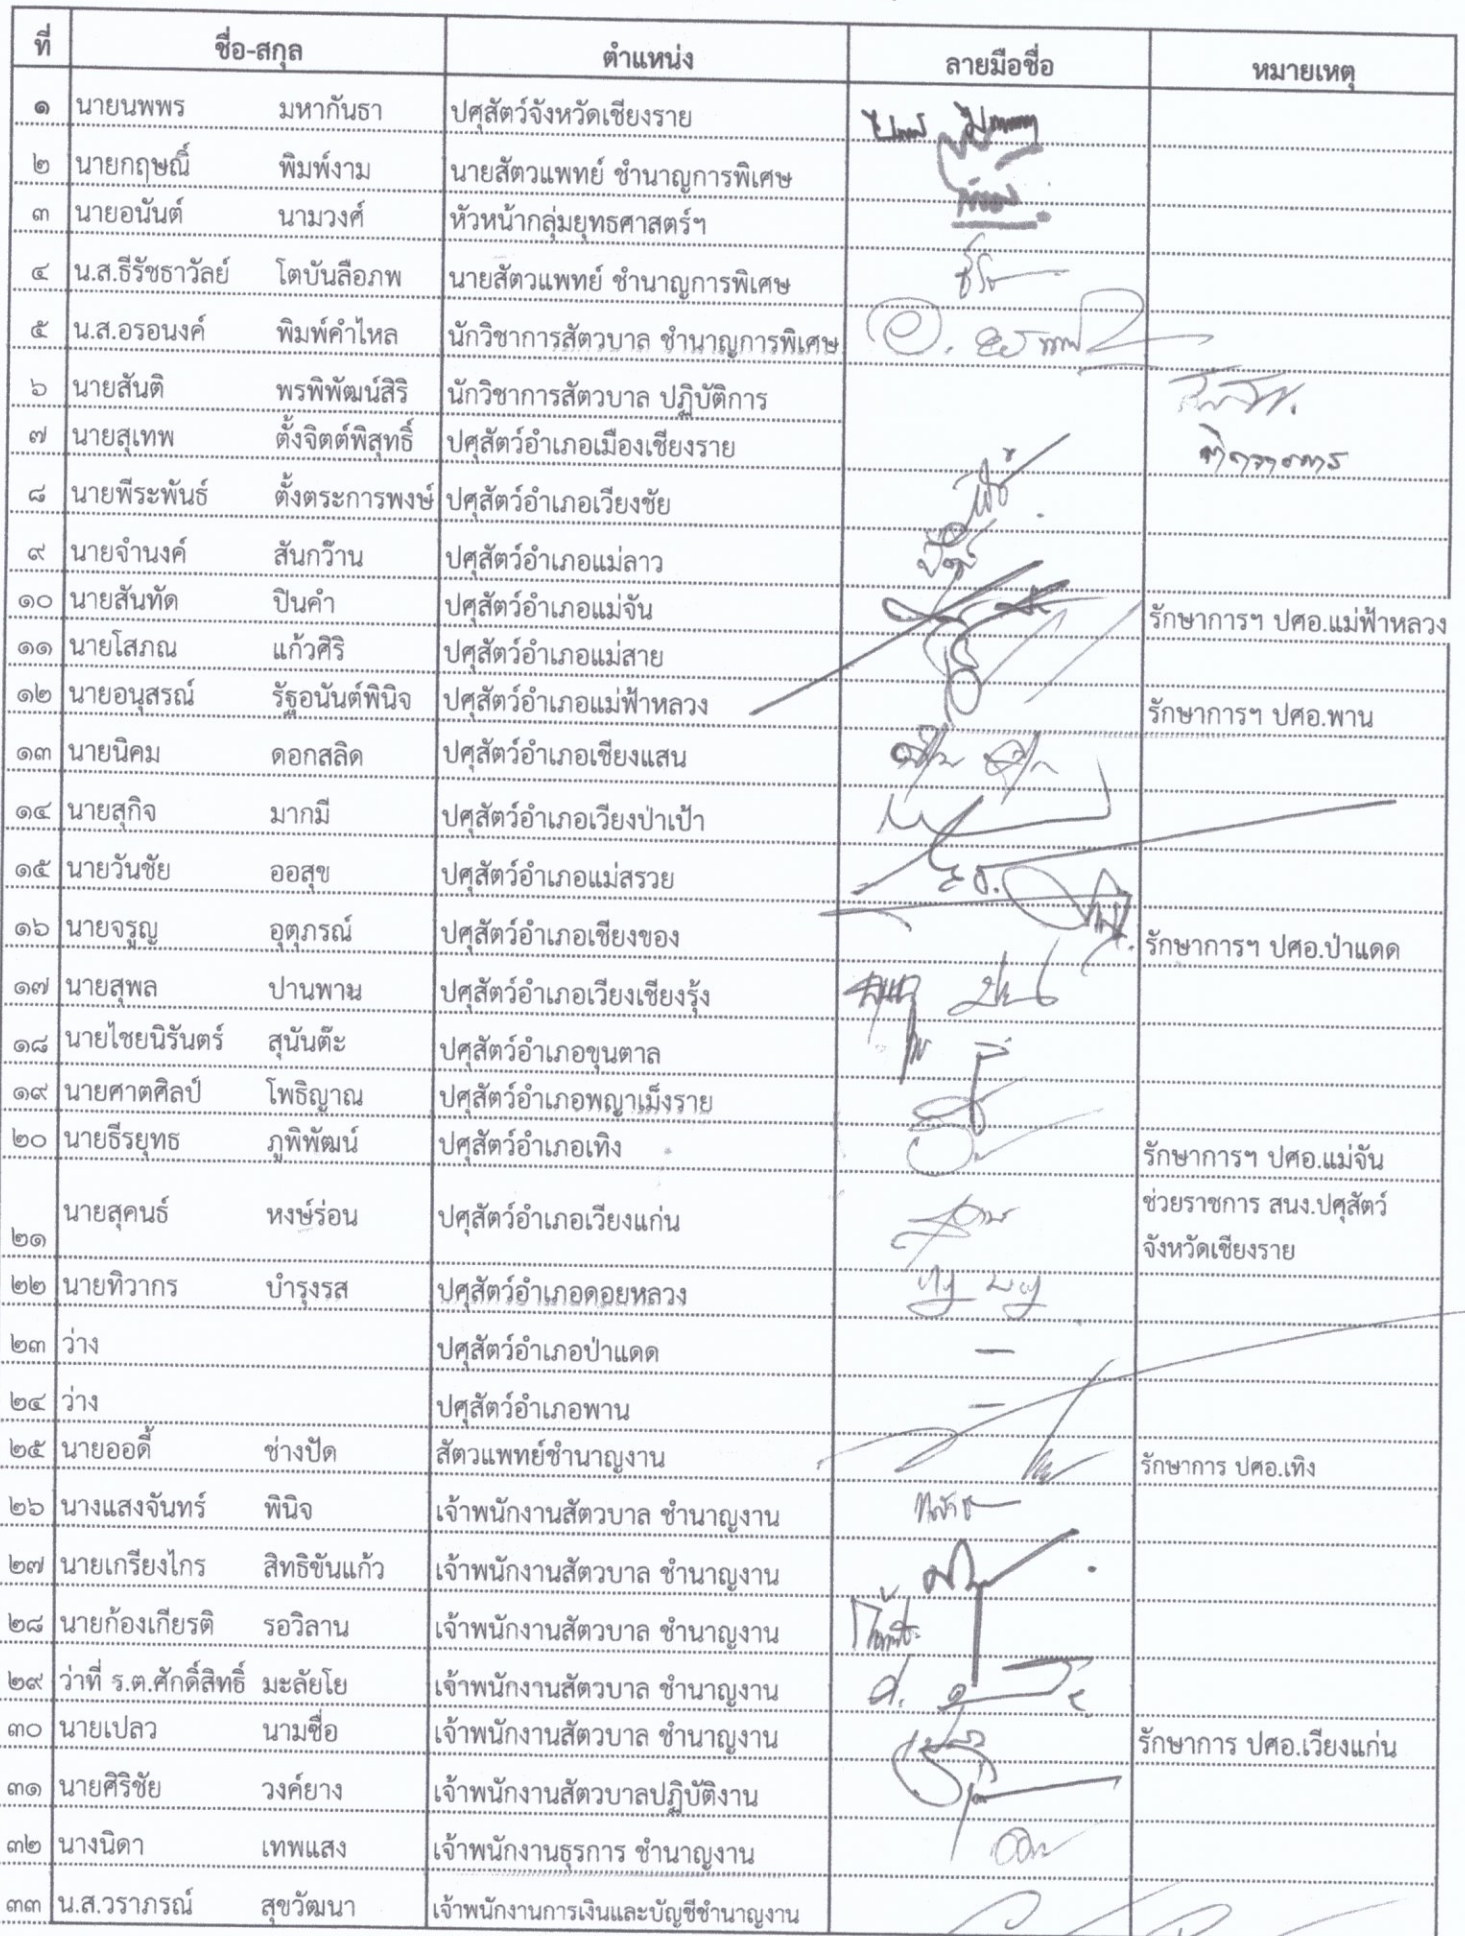 ที่ ชื่อ-สกุล ตำแหน่ง ลายมือชื่อ หมายเหตุ
๑ นายนพพร มหากันธา ปศุสัตว์จังหวัดเชียงราย
๒ นายกฤษณิ์ พิมพ์งาม นายสัตวแพทย์ ชำนาญการพิเศษ
๓ นายอนันต์ นามวงศ์ หัวหน้ากลุ่มยุทธศาสตร์ฯ
๔ น.ส.ธีรัชธาวัลย์ โตบันลือภพ นายสัตวแพทย์ ชำนาญการพิเศษ
๕ น.ส.อรอนงค์ พิมพ์คำไหล นักวิชาการสัตวบาล ชำนาญการพิเศษ
๖ นายสันติ พรพิพัฒน์สิริ นักวิชาการสัตวบาล ปฏิบัติการ
๗ นายสุเทพ ตั้งจิตต์พิสุทธิ์ ปศุสัตว์อำเภอเมืองเชียงราย
๘ นายพีระพันธ์ ตั้งตระการพงษ์ ปศุสัตว์อำเภอเวียงชัย
๙ นายจำนงค์ สันกว๊าน ปศุสัตว์อำเภอแม่ลาว
๑๐ นายสันทัด ปินคำ ปศุสัตว์อำเภอแม่จัน รักษาการฯ ปศอ.แม่ฟ้าหลวง
๑๑ นายโสภณ แก้วศิริ ปศุสัตว์อำเภอแม่สาย
๑๒ นายอนุสรณ์ รัฐอนันต์พินิจ ปศุสัตว์อำเภอแม่ฟ้าหลวง รักษาการฯ ปศอ.พาน
๑๓ นายนิคม ดอกสลิด ปศุสัตว์อำเภอเชียงแสน
๑๔ นายสุกิจ มากมี ปศุสัตว์อำเภอเวียงป่าเป้า
๑๕ นายวันชัย ออสุข ปศุสัตว์อำเภอแม่สรวย
๑๖ นายจรูญ อุตุภรณ์ ปศุสัตว์อำเภอเชียงของ รักษาการฯ ปศอ.ป่าแดด
๑๗ นายสุพล ปานพาน ปศุสัตว์อำเภอเวียงเชียงรุ้ง
๑๘ นายไชยนิรันตร์ สุนันต๊ะ ปศุสัตว์อำเภอขุนตาล
๑๙ นายศาตศิลป์ โพธิญาณ ปศุสัตว์อำเภอพญาเม็งราย
๒๐ นายธีรยุทธ ภูพิพัฒน์ ปศุสัตว์อำเภอเทิง รักษาการฯ ปศอ.แม่จัน
๒๑ นายสุคนธ์ หงษ์ร่อน ปศุสัตว์อำเภอเวียงแก่น ช่วยราชการ สนง.ปศุสัตว์
จังหวัดเชียงราย
๒๒ นายทิวากร บำรุงรส ปศุสัตว์อำเภอดอยหลวง
๒๓ ว่าง ปศุสัตว์อำเภอป่าแดด –
๒๔ ว่าง ปศุสัตว์อำเภอพาน –
๒๕ นายออดี้ ช่างปัด สัตวแพทย์ชำนาญงาน รักษาการ ปศอ.เทิง
๒๖ นางแสงจันทร์ พินิจ เจ้าพนักงานสัตวบาล ชำนาญงาน
๒๗ นายเกรียงไกร สิทธิขันแก้ว เจ้าพนักงานสัตวบาล ชำนาญงาน
๒๘ นายก้องเกียรติ รอวิลาน เจ้าพนักงานสัตวบาล ชำนาญงาน
๒๙ ว่าที่ ร.ต.ศักดิ์สิทธิ์ มะลัยโย เจ้าพนักงานสัตวบาล ชำนาญงาน
๓๐ นายเปลว นามชื่อ เจ้าพนักงานสัตวบาล ชำนาญงาน รักษาการ ปศอ.เวียงแก่น
๓๑ นายศิริชัย วงค์ยาง เจ้าพนักงานสัตวบาลปฏิบัติงาน
๓๒ นางนิดา เทพแสง เจ้าพนักงานธุรการ ชำนาญงาน
๓๓ น.ส.วราภรณ์ สุขวัฒนา เจ้าพนักงานการเงินและบัญชีชำนาญงาน